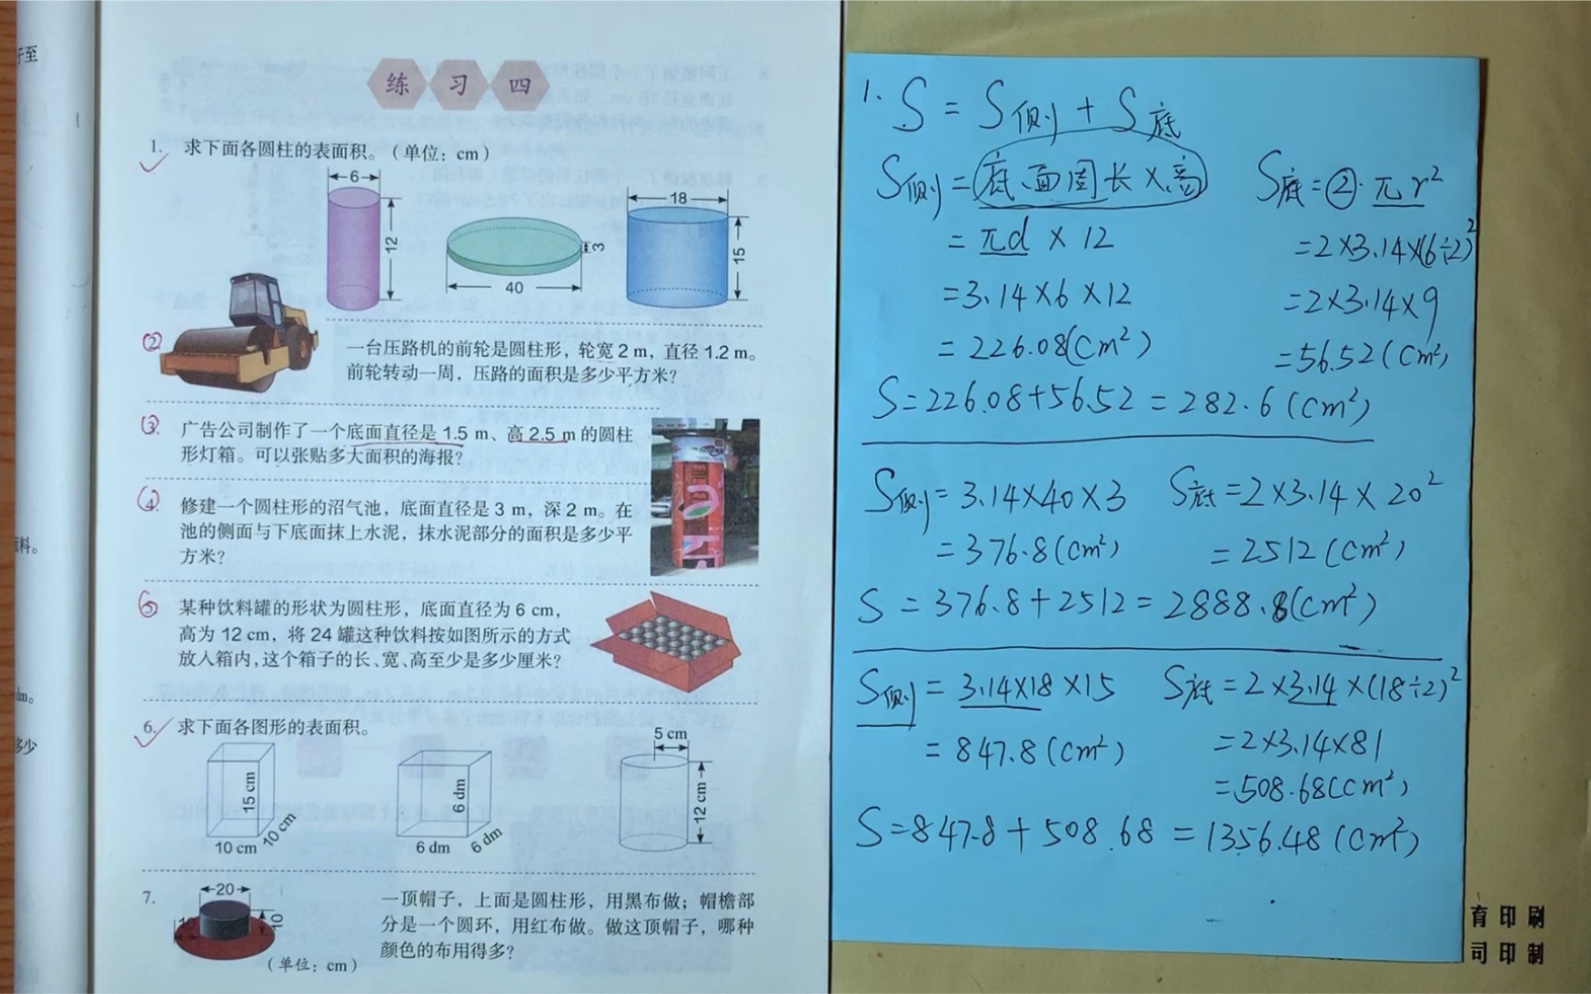 练 习 四
1. 求下面各圆柱的表面积。(单位：cm)
6
12
40
3
18
15
2. 一台压路机的前轮是圆柱形，轮宽 2 m，直径 1.2 m。
前轮转动一周，压路的面积是多少平方米？
3. 广告公司制作了一个底面直径是 1.5 m、高 2.5 m 的圆柱
形灯箱。可以张贴多大面积的海报？
4. 修建一个圆柱形的沼气池，底面直径是 3 m，深 2 m。在
池的侧面与下底面抹上水泥，抹水泥部分的面积是多少平
方米？
5. 某种饮料罐的形状为圆柱形，底面直径为 6 cm，
高为 12 cm，将 24 罐这种饮料按如图所示的方式
放入箱内，这个箱子的长、宽、高至少是多少厘米？
6. 求下面各图形的表面积。
15 cm
10 cm
10 cm
6 dm
6 dm
6 dm
5 cm
12 cm
7. 一顶帽子，上面是圆柱形，用黑布做；帽檐部
分是一个圆环，用红布做。做这顶帽子，哪种
颜色的布用得多？
20
10
10
(单位：cm)
1. S = S侧 + S底
S侧 = 底面周长×高
= πd × 12
= 3.14×6×12
= 226.08(cm²)
S底 = ②·πr²
= 2×3.14×(6÷2)²
= 2×3.14×9
= 56.52(cm²)
S = 226.08+56.52 = 282.6(cm²)
S侧 = 3.14×40×3
= 376.8(cm²)
S底 = 2×3.14×20²
= 2512(cm²)
S = 376.8+2512 = 2888.8(cm²)
S侧 = 3.14×18×15
= 847.8(cm²)
S底 = 2×3.14×(18÷2)²
= 2×3.14×81
= 508.68(cm²)
S = 847.8+508.68 = 1356.48(cm²)
育 印 刷
司 印 制